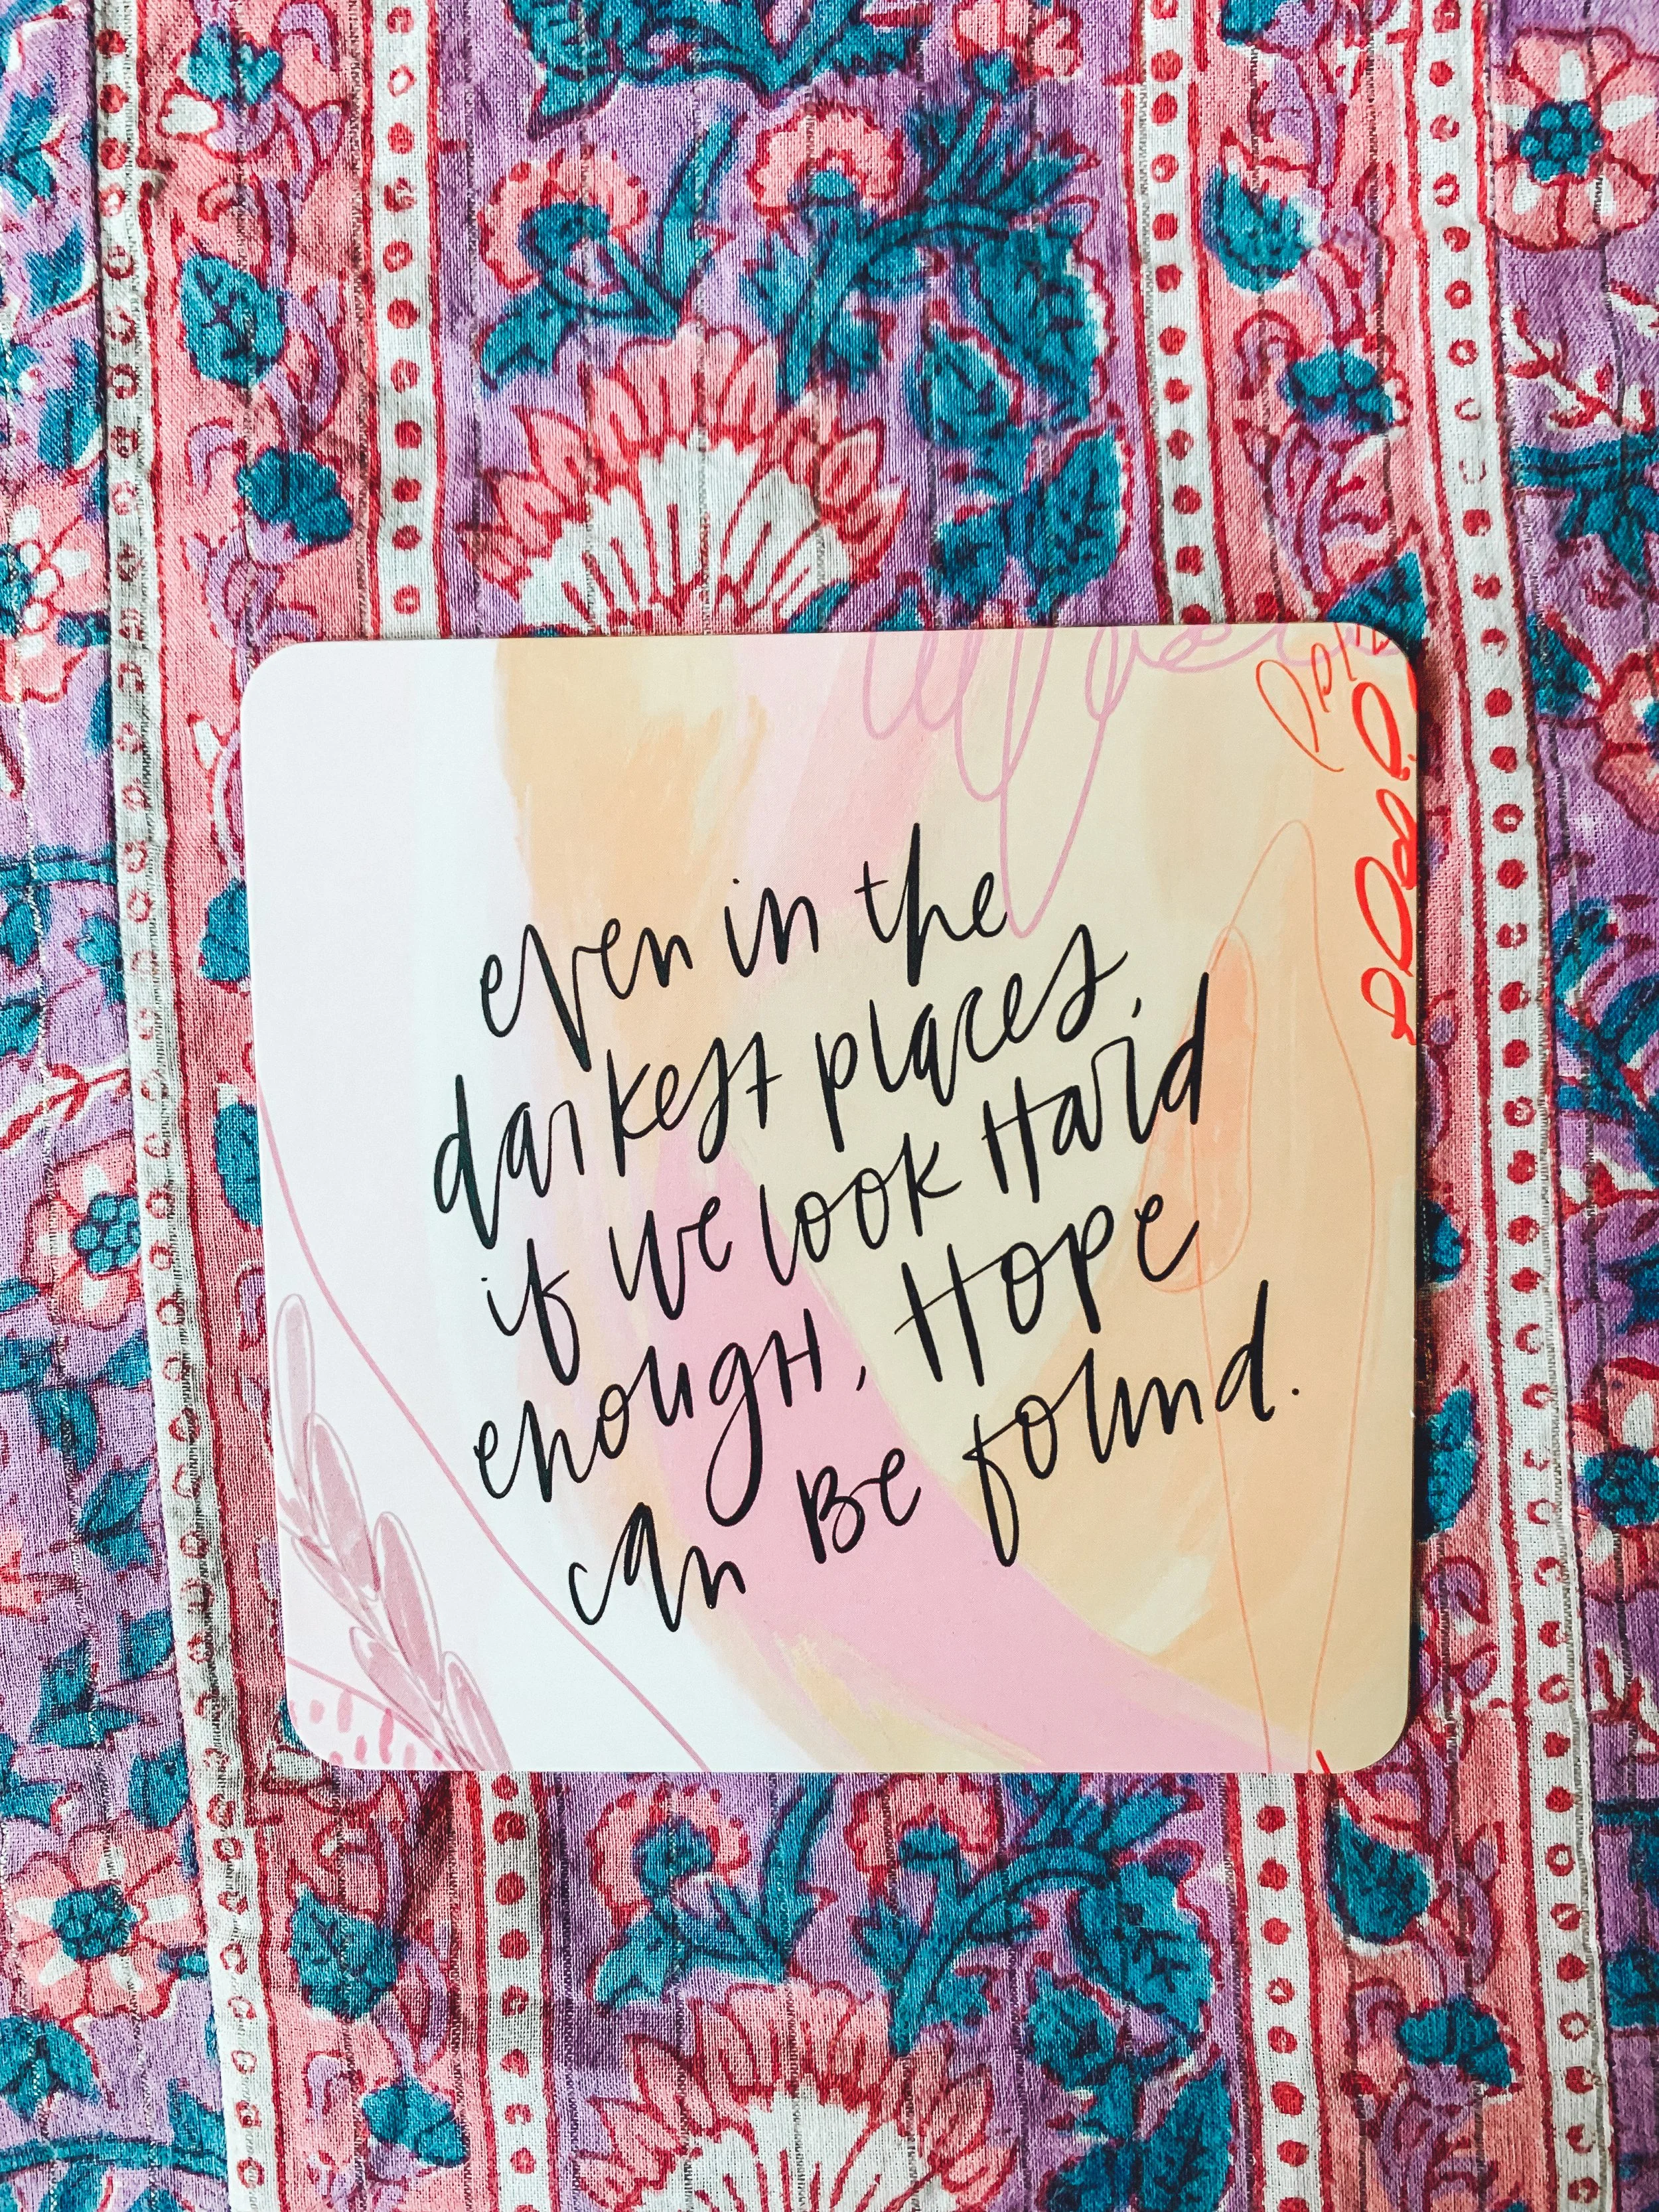 even in the
darkest places,
if we look Hard
enougH, Hope
can Be found.